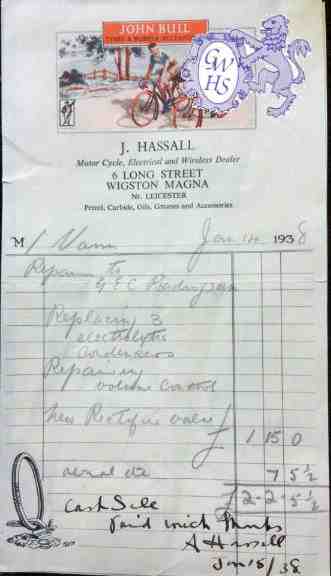 JOHN BULL
TYRES & RUBBER ACCESSORIES
GWHS
J. HASSALL
Motor Cycle, Electrical and Wireless Dealer
6 LONG STREET
WIGSTON MAGNA
Nr. LEICESTER
Petrol, Carbide, Oils, Greases and Accessories
M Jan 14 1938
Repairs to
G E C
Replacing 3
electrolytic
condensers
Repairing
volume control
New Rectifier valve
£ 1 15 0
7 5½
£ 2-2-5½
Cash Sale
Paid with thanks
A Hassall
Jan 15/38